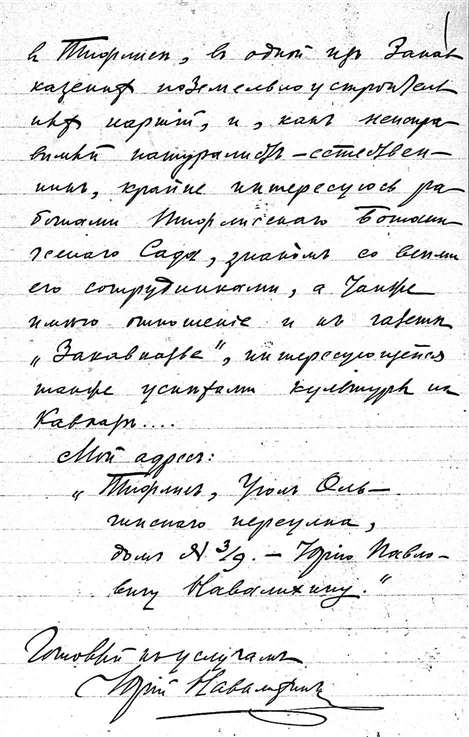 въ Тифлисѣ, въ одной изъ Закав
казскихъ поземельноустроитель
ныхъ партій, и, какъ неиспра
вимый натуралистъ-естествен-
никъ, крайне интересуюсь ра
ботами Тифлисскаго Ботани
ческаго Сада, знакомъ со всѣми
его сотрудниками, а также
имѣю отношеніе и къ газетѣ
„Закавказье", интересующейся
также успѣхами культуры на
Кавказѣ....
Мой адресъ:
„Тифлисъ, Уголъ Оль-
гинскаго переулка,
домъ № 3/9. – Юрію Павло-
вичу
Готовый къ услугамъ
Юрій